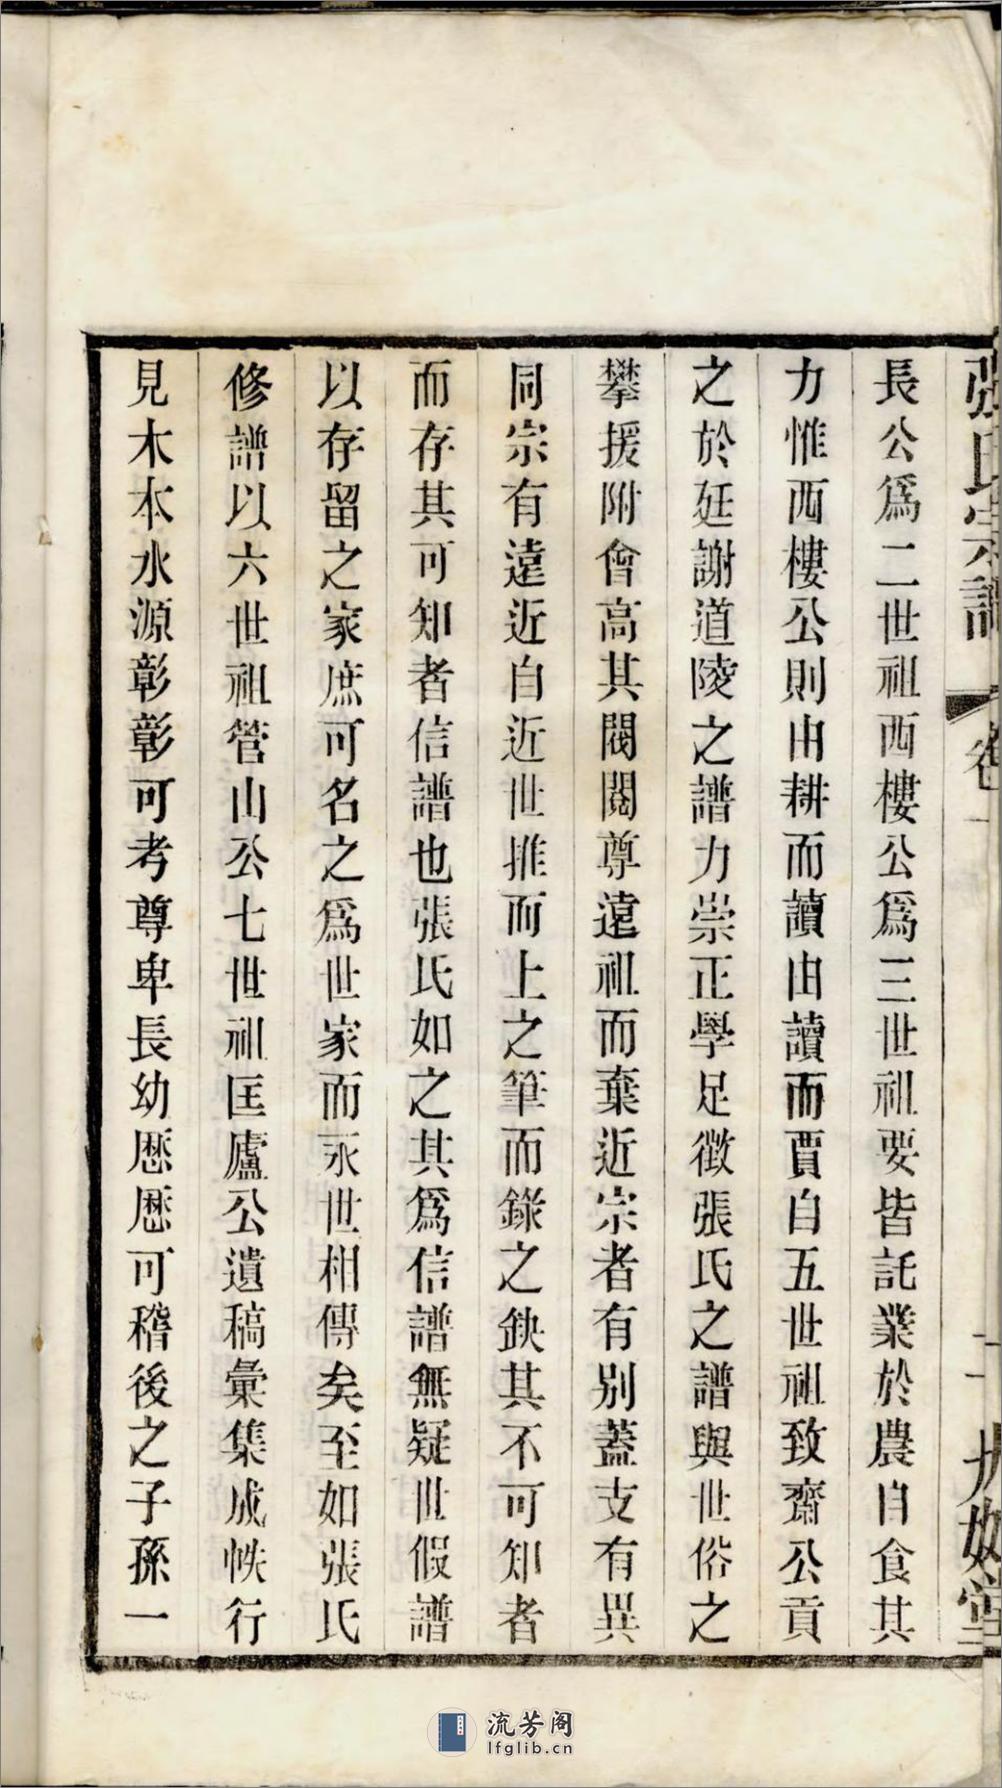 張氏宗譜 卷一 九如堂
長公爲二世祖西樓公爲三世祖要皆託業於農自食其
力惟西樓公則由耕而讀由讀而賈自五世祖致齋公貢
之於廷謝道陵之譜力崇正學足徵張氏之譜與世俗之
攀援附會高其閥閱尊遠祖而棄近宗者有别蓋支有異
同宗有遠近自近世推而上之筆而錄之鈌其不可知者
而存其可知者信譜也張氏如之其爲信譜無疑世假譜
以存留之家庶可名之爲世家而永世相傳矣至如張氏
修譜以六世祖管山公七世祖匡廬公遺稿彙集成帙行
見木本水源彰彰可考尊卑長幼歷歷可稽後之子孫一
流芳阁
lfglib.cn